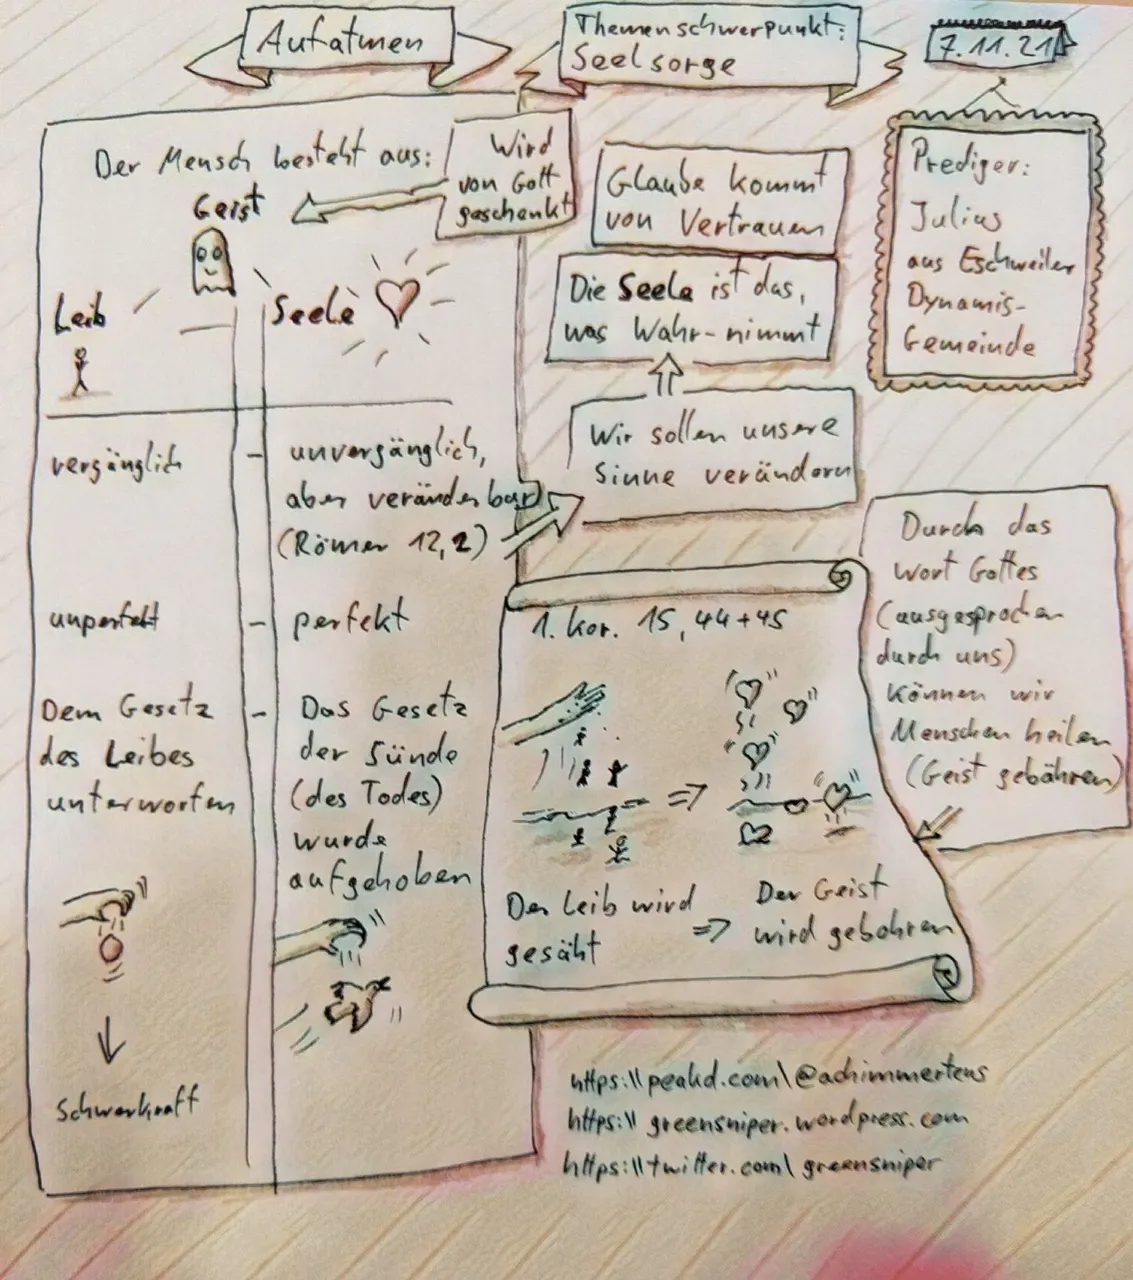 Aufatmen
Themenschwerpunkt:
Seelsorge
7.11.21
Der Mensch besteht aus:
Geist
Wird
von Gott
geschenkt
Leib
Seele
vergänglich -
unvergänglich,
aber veränderbar
(Römer 12,2)
unperfekt -
perfekt
Dem Gesetz -
des Leibes
unterworfen
Das Gesetz
der Sünde
(des Todes)
wurde
aufgehoben
Schwerkraft
Glaube kommt
von Vertrauen
Die Seele ist das,
was Wahr-nimmt
Wir sollen unsere
Sinne verändern
Prediger:
Julius
aus Eschweiler
Dynamis-
Gemeinde
1. Kor. 15, 44+45
Der Leib wird
gesäht
=>
Der Geist
wird gebohren
Durch das
Wort Gottes
(ausgesprochen
durch uns)
können wir
Menschen heilen
(Geist gebähren)
https:\\peakd.com\@achimmertens
https:\\greensniper.wordpress.com
https:\\twitter.com\greensniper